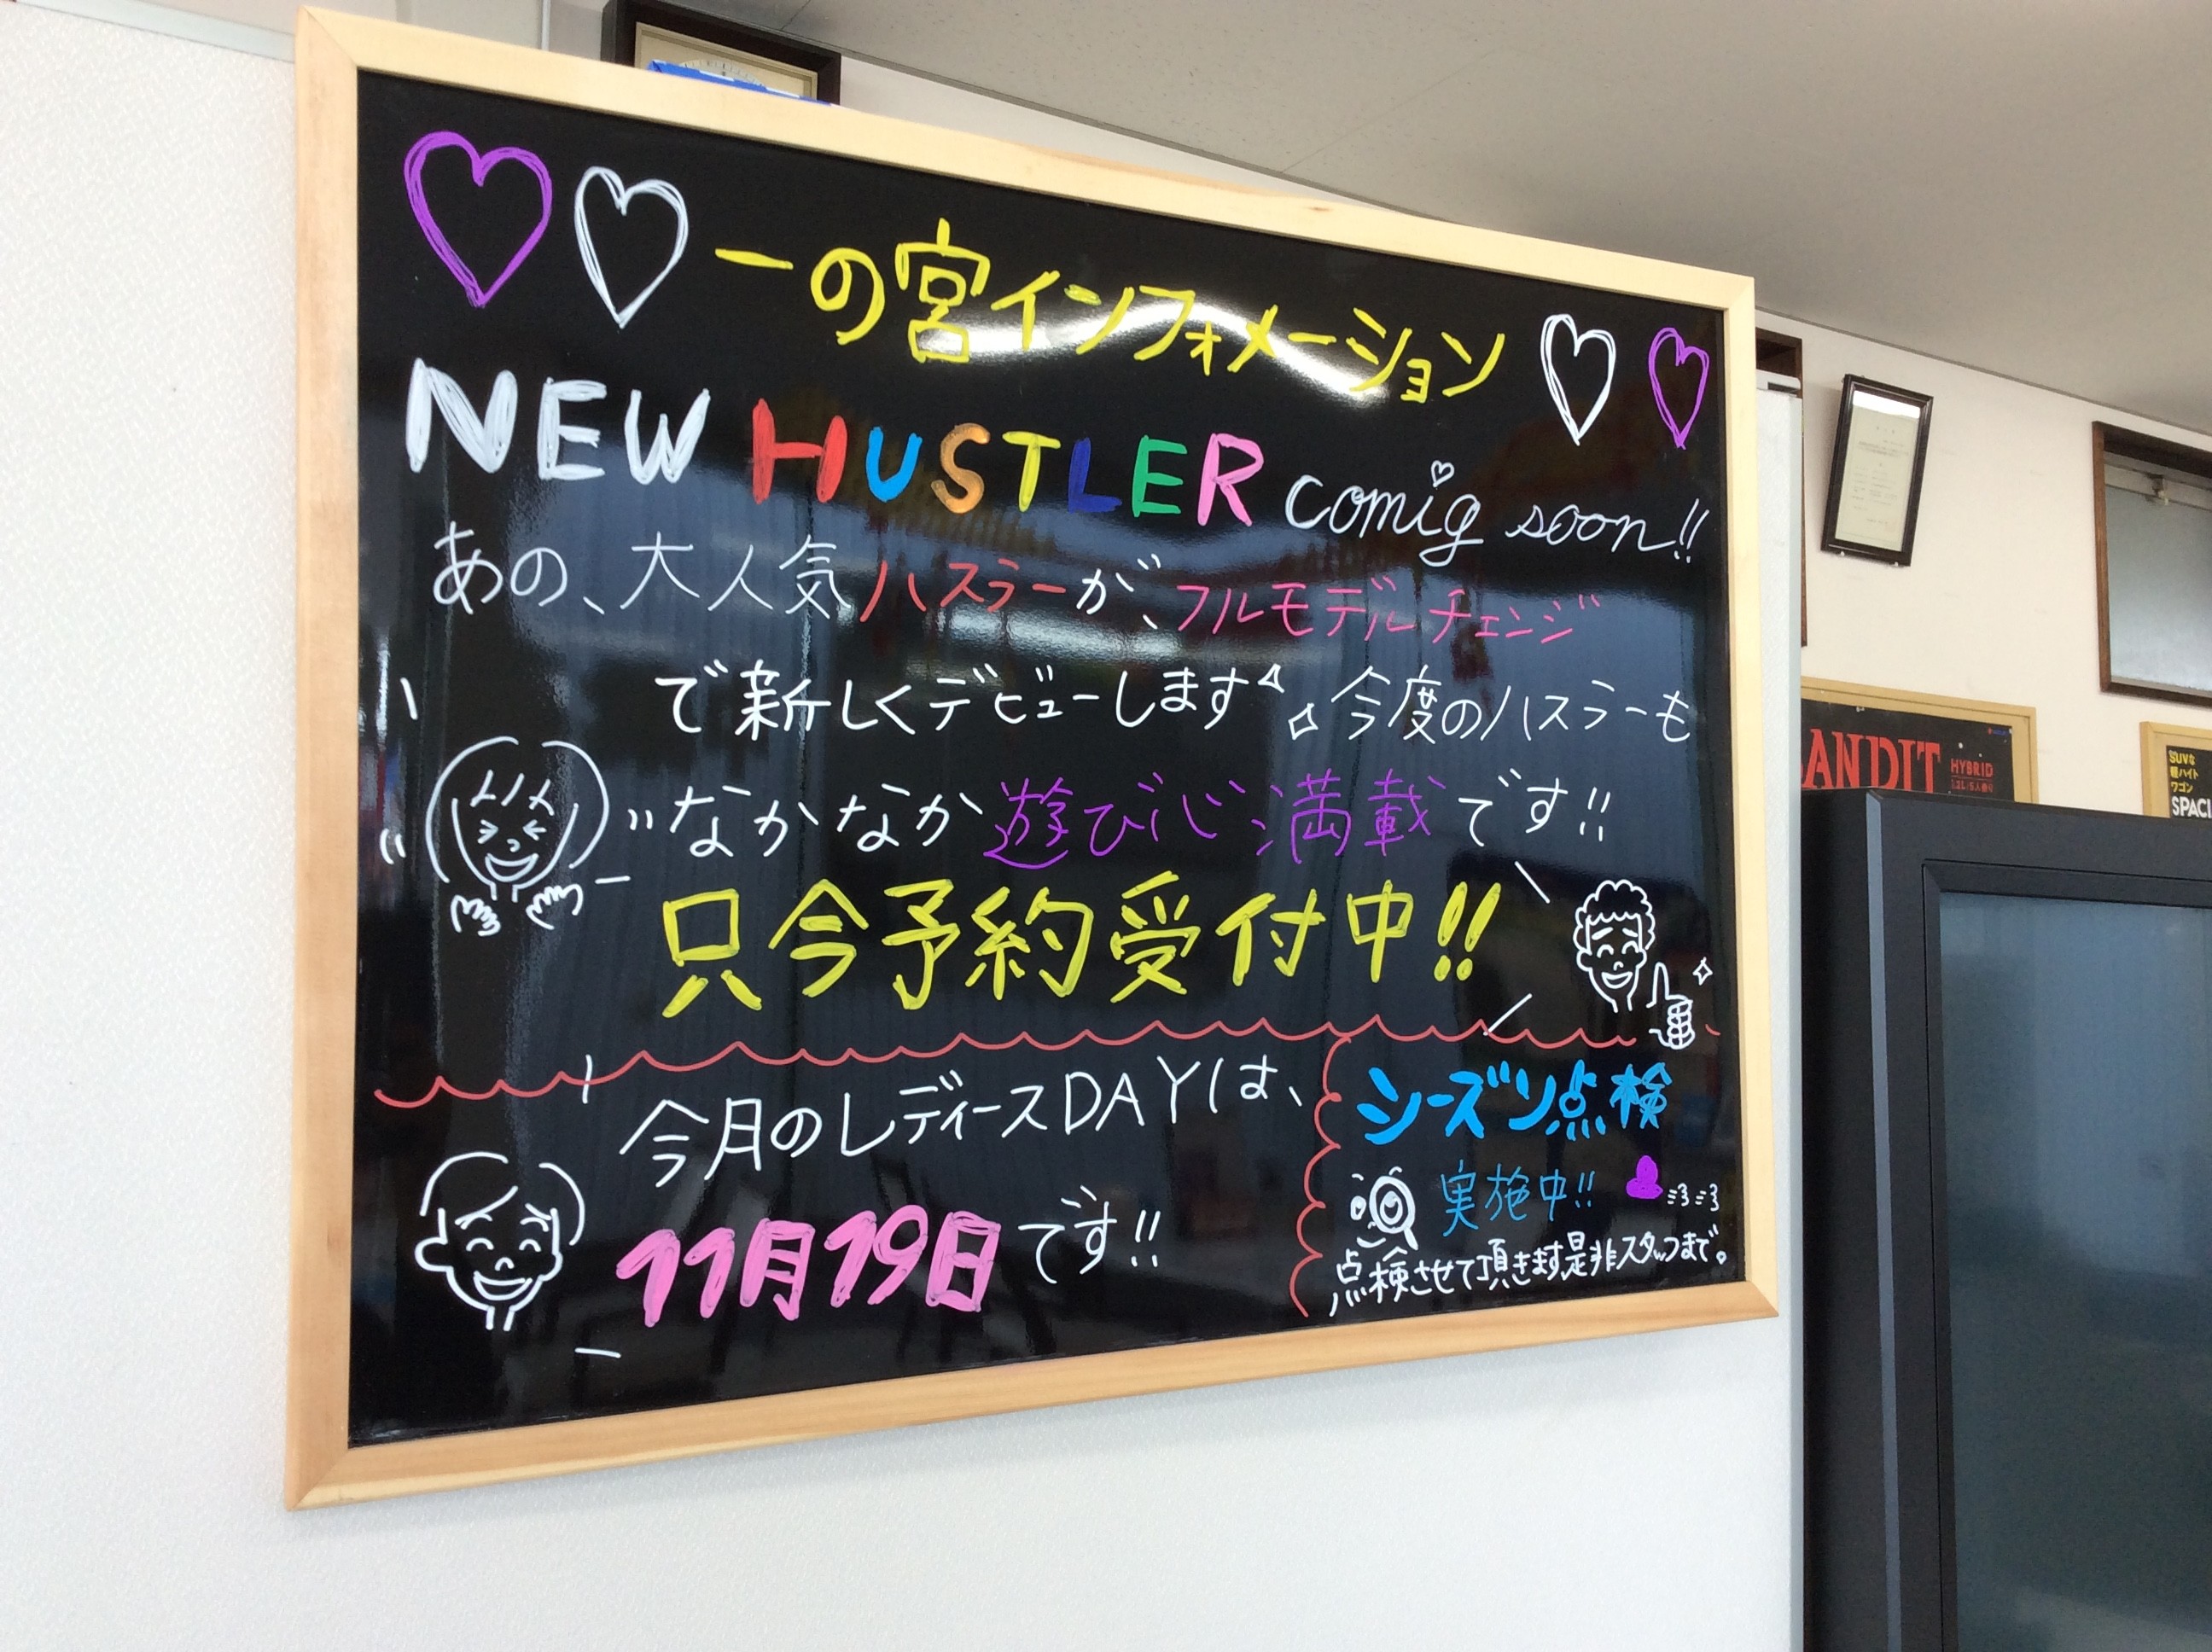 一の宮インフォメーション
NEW HUSTLER comig soon!!
あの、大人気ハスラーが、フルモデルチェンジ
で新しくデビューします 今度のハスラーも
なかなか遊び心満載です!!
只今予約受付中!!
今月のレディースDAYは、
11月19日です!!
シーズン点検
実施中!!
点検させて頂きます是非スタッフまで。
ANDIT
HYBRID
SUVな
軽ハイト
ワゴン
SPACI